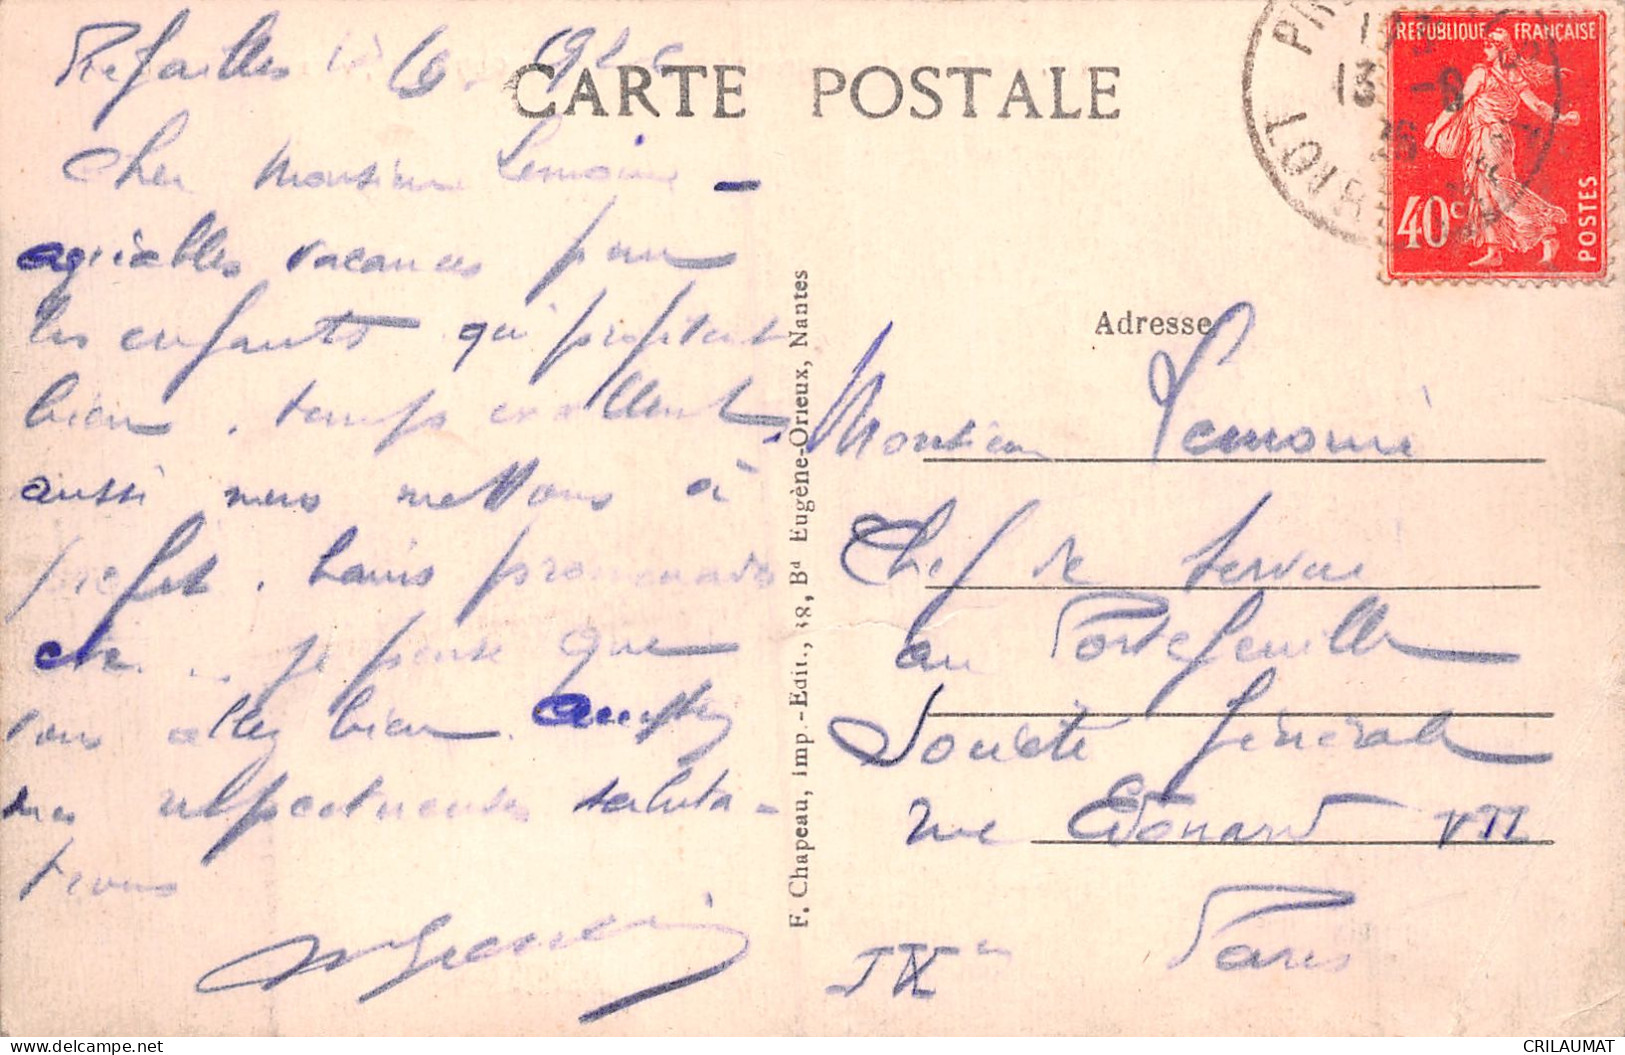 Cher Monsieur Lemoine –
agréables vacances pour
les enfants qui profitent
bien. temps excellent,
aussi nous mettons à
profit. bains promenades
etc. .. je pense que
vous allez bien.
mes respectueuses saluta-
tions
CARTE POSTALE
Adresse
Monsieur Lemoine
Chef de Service
au Portefeuille
Société Générale
rue Edouard VII
Paris
IXe
F. Chapeau, imp.-Edit., 38, Bd Eugène-Orieux, Nantes
REPUBLIQUE FRANÇAISE
40c
POSTES
13 -9
CRILAUMAT